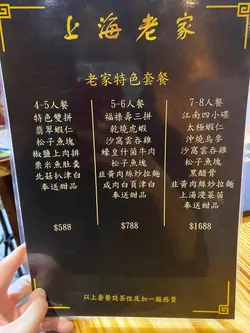 上海老家
老家特色套餐
4-5人餐
特色雙拼
翡翠蝦仁
松子魚塊
椒鹽上肉排
粟米魚肚羹
北菇扒津白
奉送甜品
$588
5-6人餐
福祿壽三拼
乾燒虎蝦
沙窩雲吞雞
蠔皇什菌牛肉
松子魚塊
咸肉百頁津白
奉送甜品
$788
7-8人餐
江南四小碟
太極蝦仁
沖燒烏參
沙窩雲吞雞
松子魚塊
黑醋骨
韭黃肉絲炒拉麵
上湯浸菜苗
奉送甜品
$1688
以上套餐設茶位及加一服務費